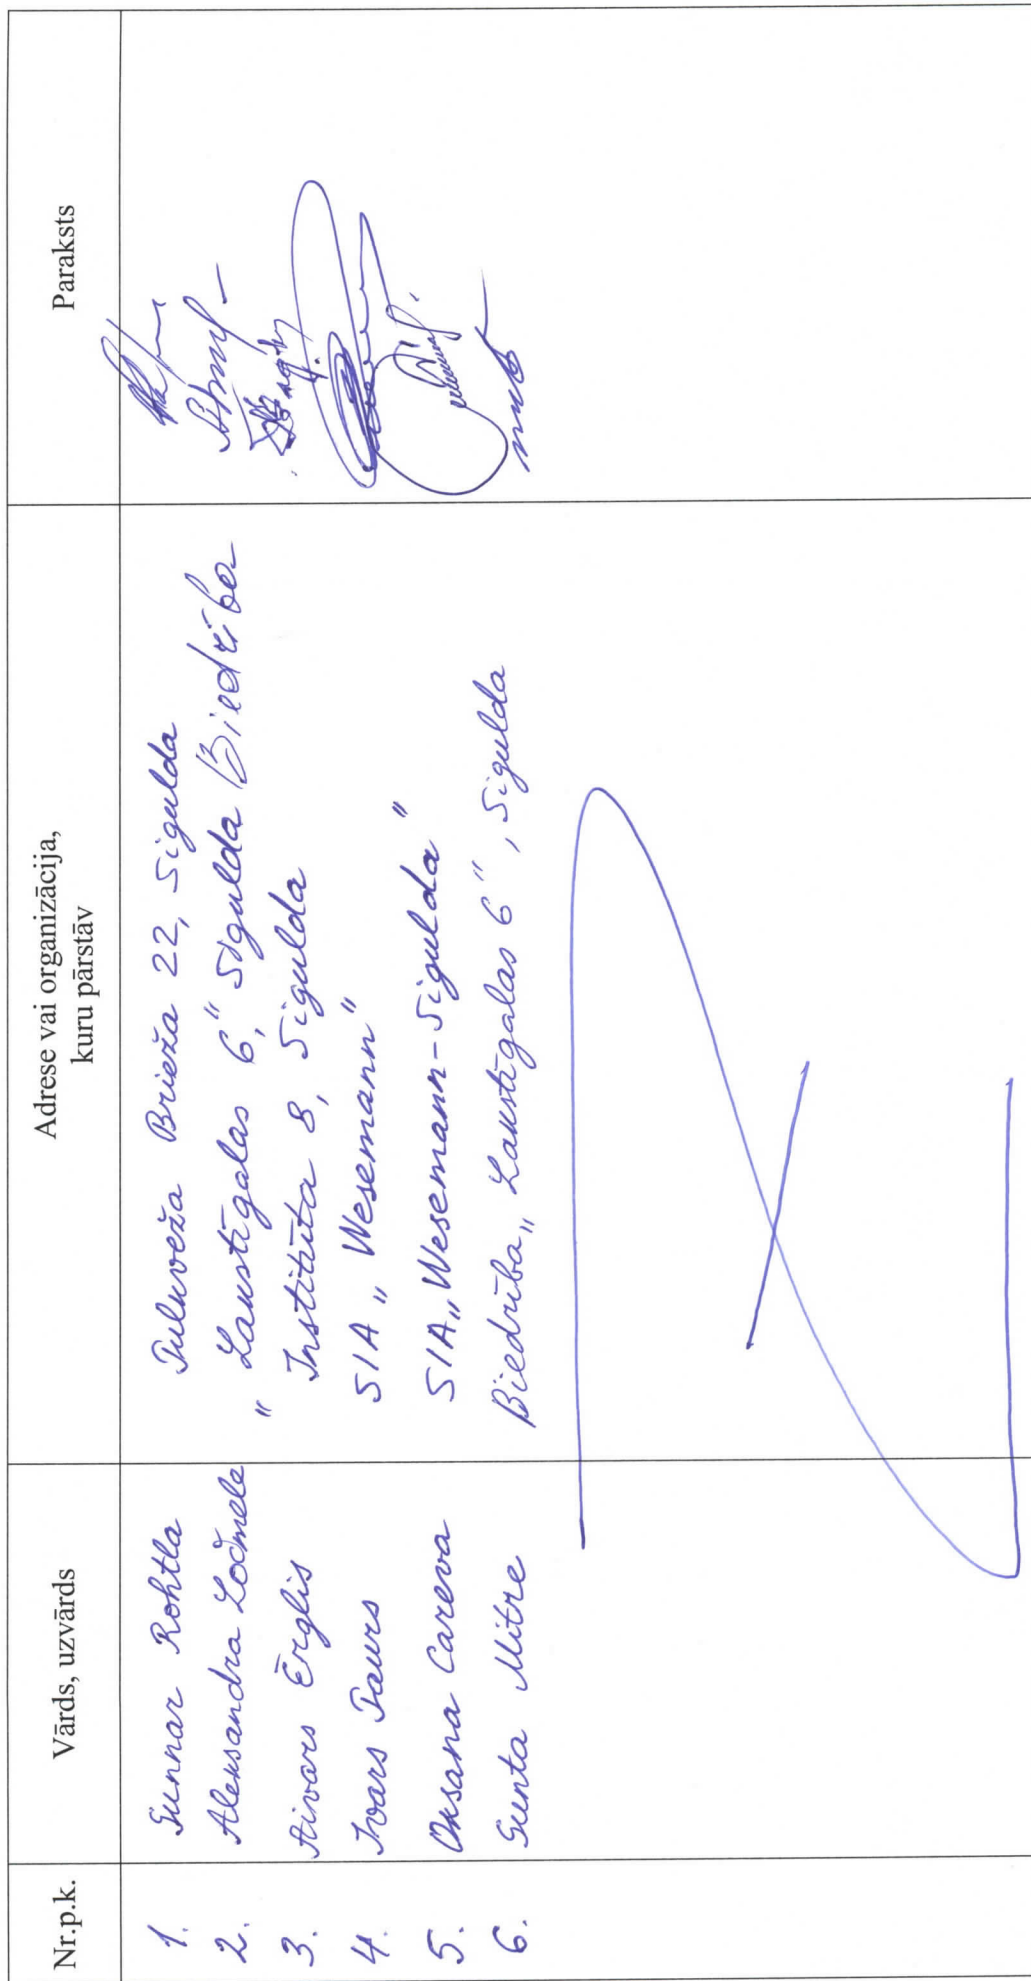 Nr.p.k. Vārds, uzvārds Adrese vai organizācija, Paraksts
kuru pārstāv
1. Gunnar Rohtla Pulkveža Brieža 22, Sigulda
2. Aleksandra Ločmele "Lakstīgalas 6", Sigulda Biedrība
3. Aivars Ērglis Institūta 8, Sigulda
4. Ivars Taurs SIA „Wesemann"
5. Oksana Careva SIA „Wesemann-Sigulda"
6. Gunta Mitre Biedrība „Lakstīgalas 6", Sigulda